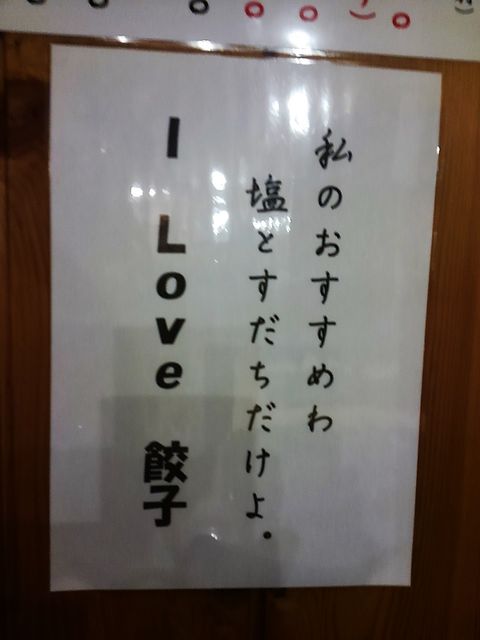 私のおすすめわ
塩とすだちだけよ.
I Love 餃子